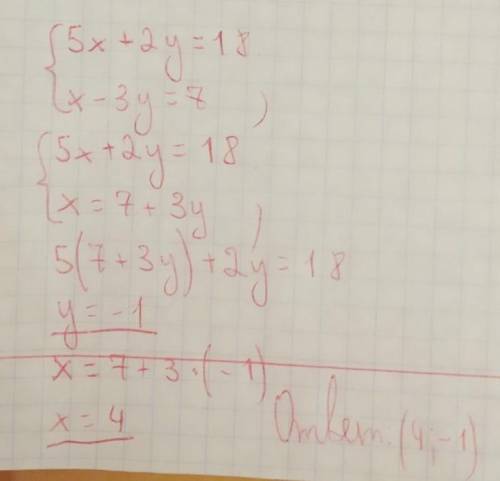 {5x + 2y = 18
{x - 3y = 7 ,
{5x + 2y = 18
{x = 7 + 3y ,
5(7 + 3y) + 2y = 18
y = -1
x = 7 + 3 · (-1)
x = 4
Ответ. (4; -1)